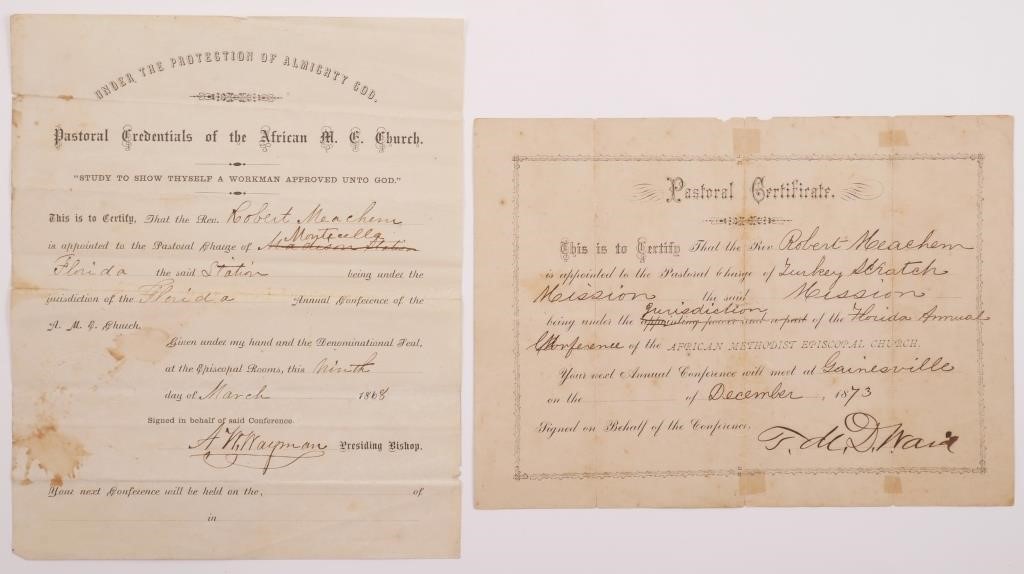 UNDER THE PROTECTION OF ALMIGHTY GOD.
Pastoral Credentials of the African M. E. Church.
"STUDY TO SHOW THYSELF A WORKMAN APPROVED UNTO GOD."
This is to Certify, That the Rev. Robert Meachem
Monticello
is appointed to the Pastoral Charge of Madison Station
Florida the said Station being under the
jurisdiction of the Florida Annual Conference of the
A. M. E. Church.
Given under my hand and the Denominational Seal,
at the Episcopal Rooms, this Ninth
day of March 1868
Signed in behalf of said Conference.
A. W. Wayman Presiding Bishop.
Your next Conference will be held on the, of
in
Pastoral Certificate.
This is to Certify That the Rev Robert Meachem
is appointed to the Pastoral Charge of Turkey Scratch
Mission the said Mission
Jurisdiction
being under the appointing power and a part of the Florida Annual
Conference of the AFRICAN METHODIST EPISCOPAL CHURCH.
Your next Annual Conference will meet at Gainesville
on the of December, 1873
Signed on Behalf of the Conference.
T. M. D. Ward